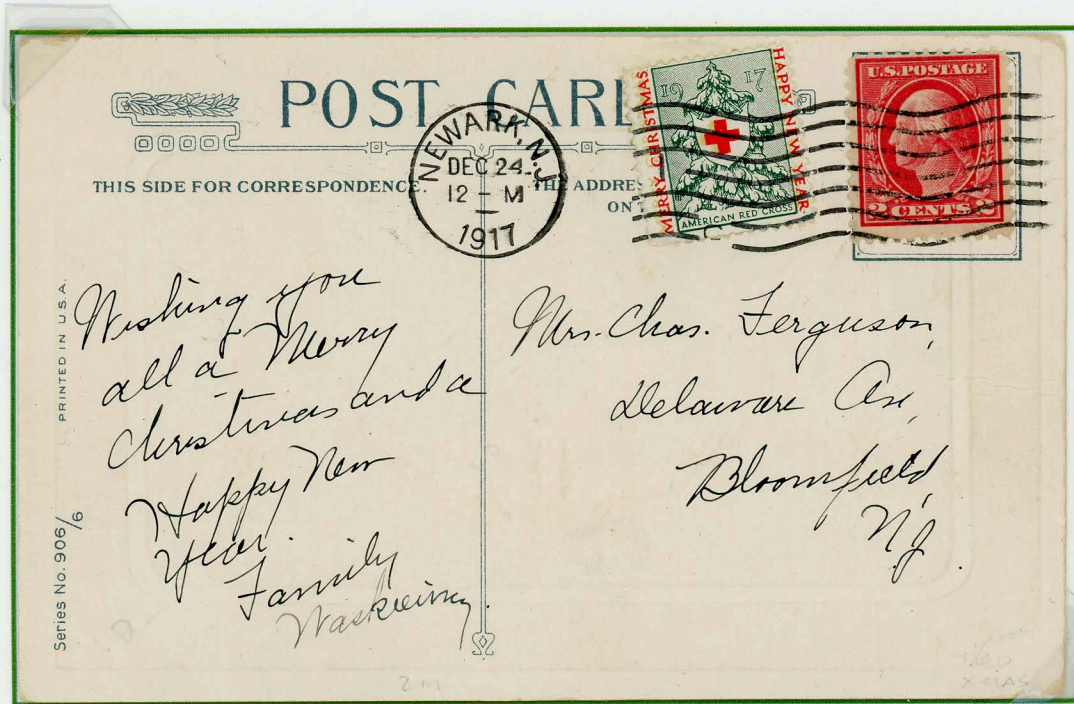 POST CAR
THIS SIDE FOR CORRESPONDENCE.
THE ADDRES
ON T
NEWARK, N.J.
DEC 24
12 - M
1917
MERRY CHRISTMAS
HAPPY NEW YEAR
1917
AMERICAN RED CROSS
U.S. POSTAGE
2 CENTS 2
PRINTED IN U.S.A.
Series No. 906/6
Wishing you
all a Merry
Christmas and a
Happy New
Year.
Family
Mrs. Chas. Ferguson,
Delaware Ave,
Bloomfield,
N.J.
2M
XMAS